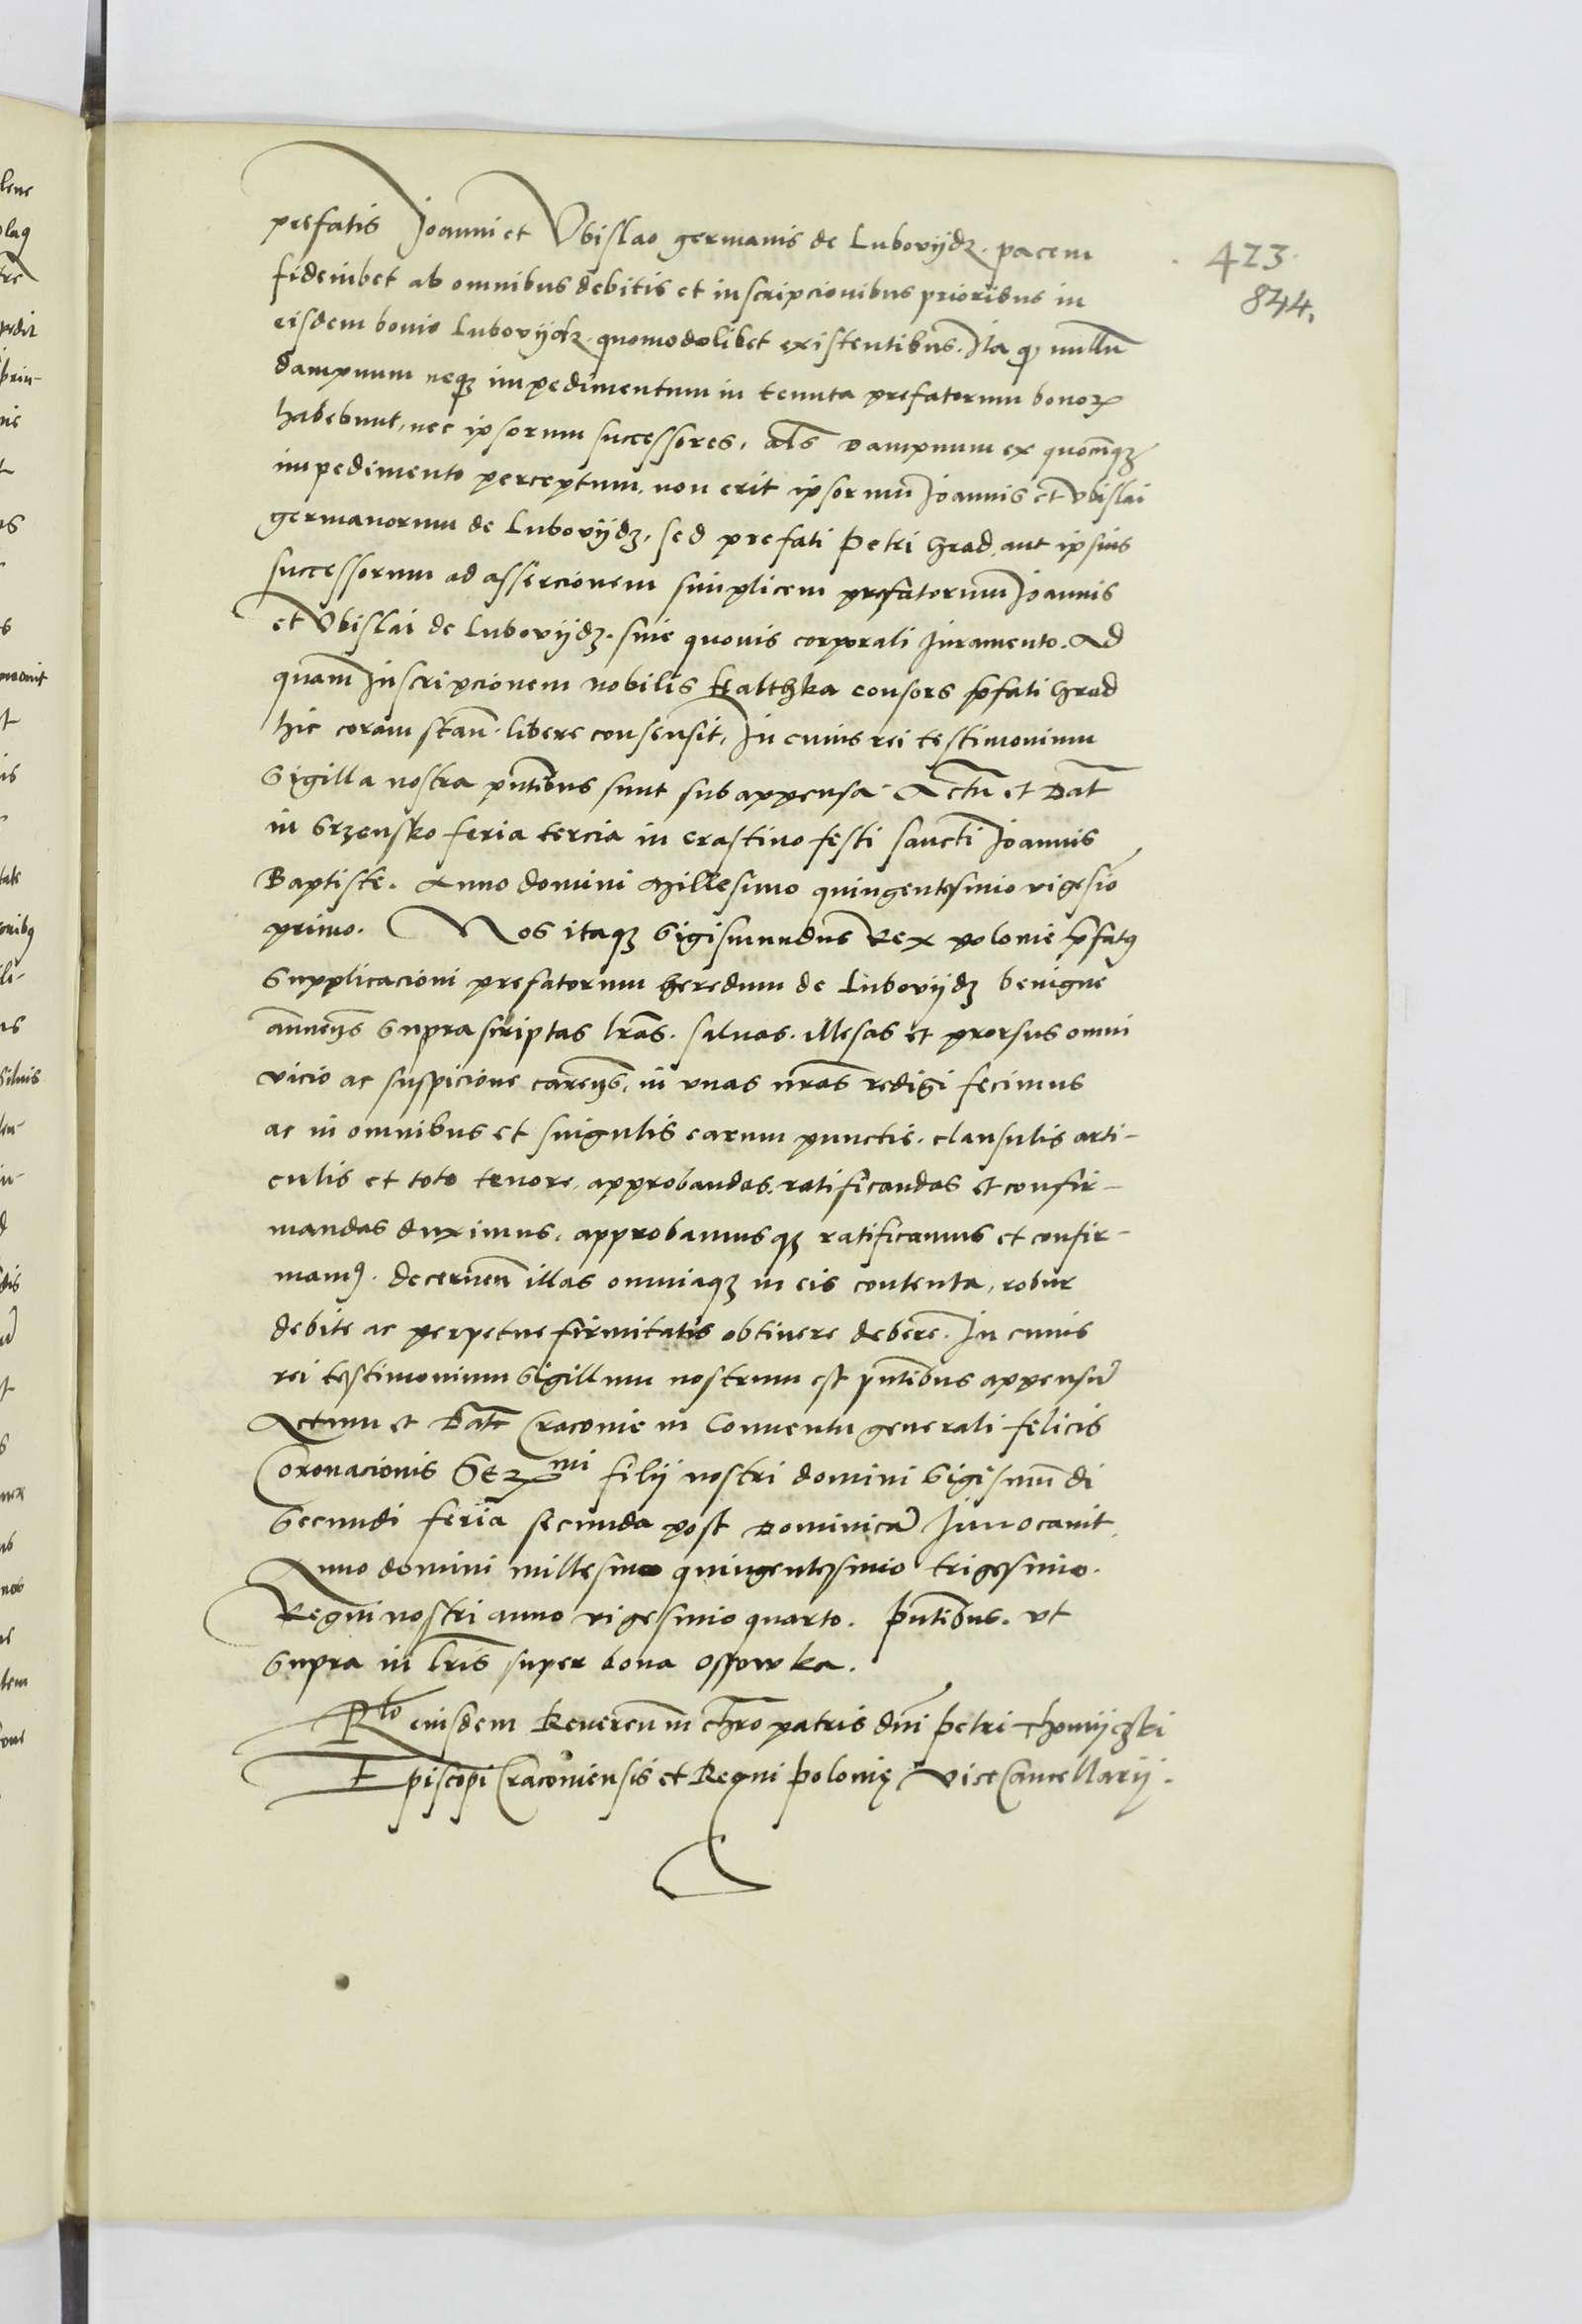 prefatis Joanni et Vbislao germanis de Lubovijdz. pacem
fideiubet ab omnibus debitis et inscripcionibus prioribus in
eisdem bonis Lubovijdz. quomodolibet existentibus. Ita qƺ nullū
dampnum neqƺ impedimentum in tenuta prefatorum bonoꝝ
habebunt, nec ipsorum successores, als dampnum ex quocūqƺ
impedimento perceptum, non erit ipsorum Joannis et Vbislai
germanorum de Lubovijdz, sed prefati Petri Grad, aut ipsius
successorum ad assercionem simplicem prefatorum Joannis
et Vbislai de Lubovijdz. sine quovis corporali Juramento. Ad
quam Inscripcionem nobilis Halthka consors p̄fati Grad
hic coram stan̄. libere consensit, In cuius rei testimonium
Sigilla nostra pn̄tibus sunt subappensa. Actū et Dat̄
in Brzensko feria tercia in crastino festi Sancti Joannis
Baptiste. Anno domini Millesimo quingentesimo vigesi͞o
primo. Nos itaqƺ Sigismundus Rex polonie p̄fatꝰ
Supplicacioni prefatorum heredum de Lubovijdz benigne
annuen̄s Supra scriptas l̄ras. salvas. illesas et prorsus omni
vicio ac suspicione caren̄s, in vnas n̄ras redigi fecimus
ac in omnibus et singulis earum punctis. clausulis arti-
culis et toto tenore, approbandas, ratificandas et confir-
mandas duximus, approbamusqƺ ratificamus et confir-
mamꝰ. decernen̄ illas omniaqƺ in eis contenta, robur
debite ac perpetue firmitatis obtinere debere. In cuius
rei testimonium Sigillum nostrum est pn̄tibus appensū
Actum et Dat̄ Cracovie in Conventu generali felicis
Coronacionis Serᵐⁱ filij nostri domini Sigismūdi
Secundi feria secunda post Dominicā Invocavit
Anno domini millesimo quingentesimo trigesimo.
Regni nostri anno vigesimo quarto. Pn̄tibus. vt
Supra in l̄ris super bona Ossowka.
Rˡᵒ eiusdem Reveren̄ in chr̄o patris dn̄i Petri Thomijczki
Episcopi Cracoviensis et Regni Polonię ViceCancellarij.
423.
844.